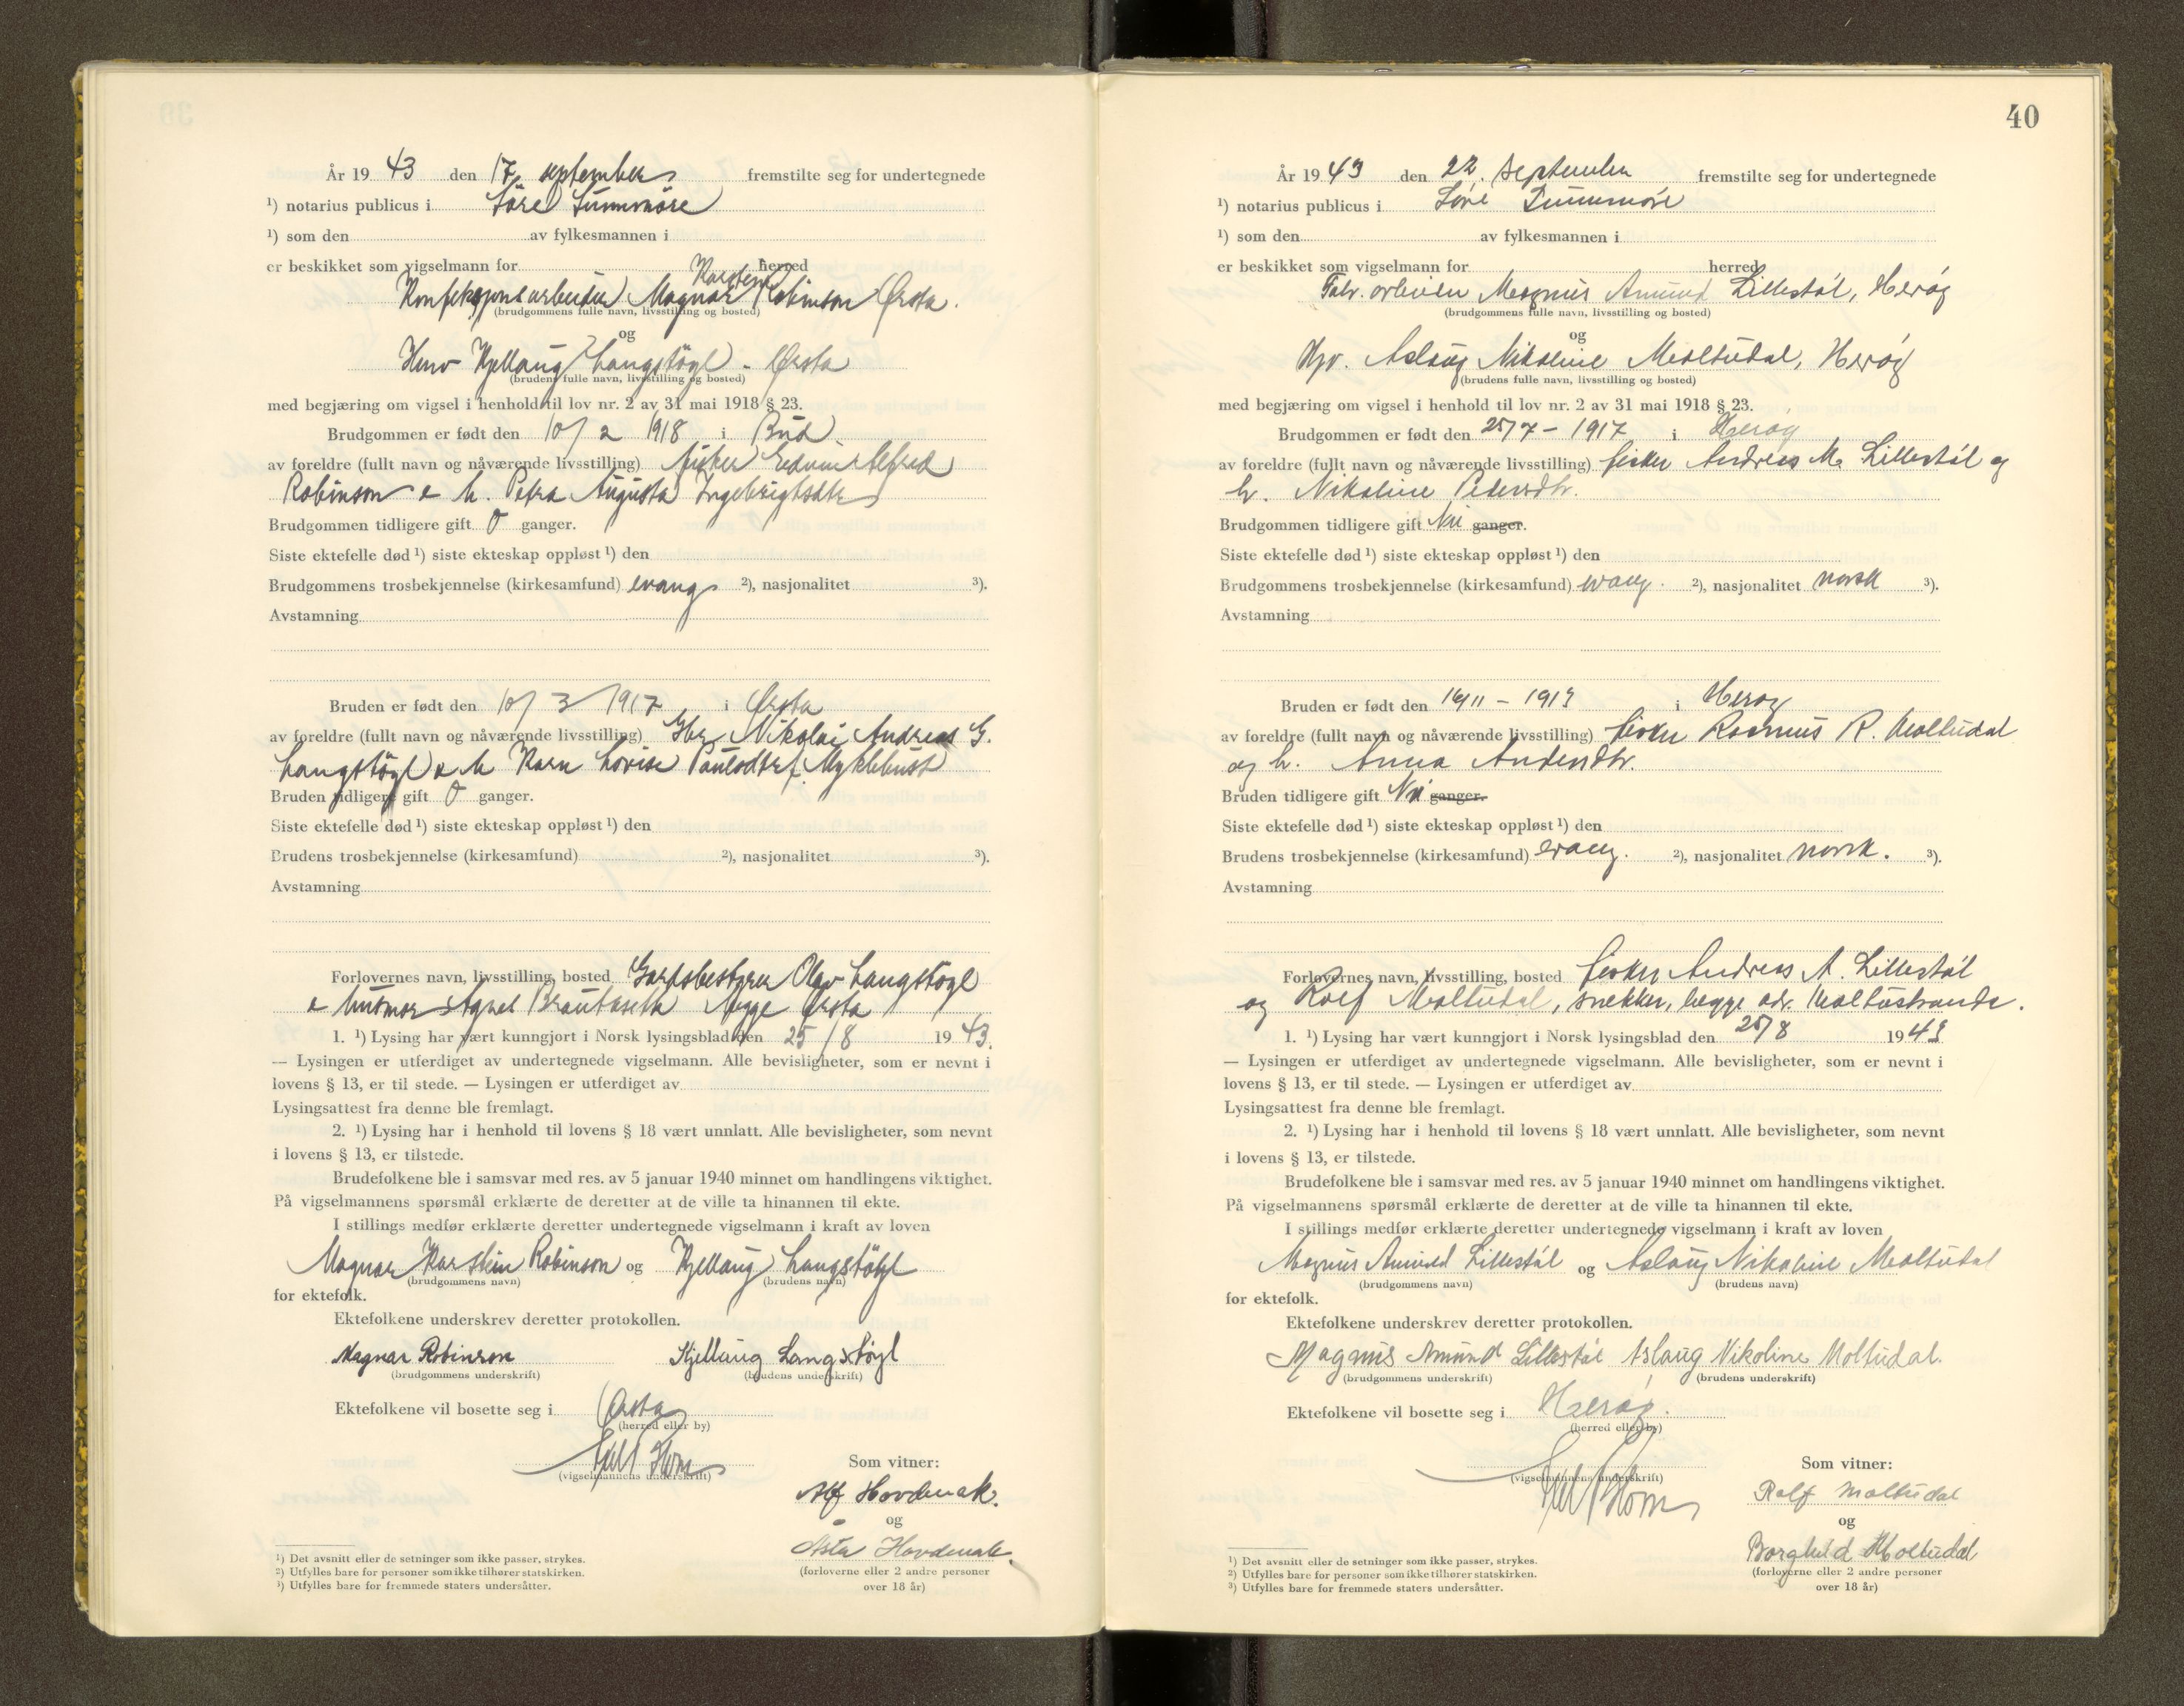 År 19 43 den 17. september fremstilte seg for undertegnede
¹) notarius publicus i Söre Sunnmöre
¹) som den av fylkesmannen i
er beskikket som vigselmann for herred
Karstein
Konfeksjonsarbeider Magnar Robinson Ørsta.
(brudgommens fulle navn, livsstilling og bosted)
og
Kjellaug Langstöyl - Ørsta
(brudens fulle navn, livsstilling og bosted)
med begjæring om vigsel i henhold til lov nr. 2 av 31 mai 1918 § 23.
Brudgommen er født den 10/ 2 1918 i Bud
av foreldre (fullt navn og nåværende livsstilling) fisker Edvin Alfred
Robinson o h. Petra Augusta Ingebrigtsdtr
Brudgommen tidligere gift 0 ganger.
Siste ektefelle død ¹) siste ekteskap oppløst ¹) den
Brudgommens trosbekjennelse (kirkesamfund) evang ²), nasjonalitet ³).
Avstamning
Bruden er født den 10/ 3 1917 i Ørsta
av foreldre (fullt navn og nåværende livsstilling) Gbr. Nikolai Andreas G.
Langstöyl o h Karn Lovise Paulsdtr f. Myklebust
Bruden tidligere gift 0 ganger.
Siste ektefelle død ¹) siste ekteskap oppløst ¹) den
Brudens trosbekjennelse (kirkesamfund) ²), nasjonalitet ³).
Avstamning
Forlovernes navn, livsstilling, bosted Gardsbestyrer Olav Langstöyl
o husmor Agnes Brautaseth begge Ørsta
1. ¹) Lysing har vært kunngjort i Norsk lysingsblad den 25/8 19 43.
— Lysingen er utferdiget av undertegnede vigselmann. Alle bevisligheter, som er nevnt i
lovens § 13, er til stede. — Lysingen er utferdiget av
Lysingsattest fra denne ble fremlagt.
2. ¹) Lysing har i henhold til lovens § 18 vært unnlatt. Alle bevisligheter, som nevnt
i lovens § 13, er tilstede.
Brudefolkene ble i samsvar med res. av 5 januar 1940 minnet om handlingens viktighet.
På vigselmannens spørsmål erklærte de deretter at de ville ta hinannen til ekte.
I stillings medfør erklærte deretter undertegnede vigselmann i kraft av loven
Magnar Karstein Robinson og Kjellaug Langstöyl
(brudgommens navn) (brudens navn)
for ektefolk.
Ektefolkene underskrev deretter protokollen.
Magnar Robinson Kjellaug Langstöyl
(brudgommens underskrift) (brudens underskrift)
Ektefolkene vil bosette seg i Ørsta
(herred eller by)
(vigselmannens underskrift)
Som vitner:
Alf Hovdenak.
og
Åsta Hovdenak.
(forloverne eller 2 andre personer
over 18 år)
¹) Det avsnitt eller de setninger som ikke passer, strykes.
²) Utfylles bare for personer som ikke tilhører statskirken.
³) Utfylles bare for fremmede staters undersåtter.
40
År 19 43 den 22. september fremstilte seg for undertegnede
¹) notarius publicus i Söre Sunnmöre
¹) som den av fylkesmannen i
er beskikket som vigselmann for herred
Fabr. arbeider Magnus Amund Lillestöl, Heröy
(brudgommens fulle navn, livsstilling og bosted)
og
Hjv. Aslaug Nikoline Moltudal, Heröy
(brudens fulle navn, livsstilling og bosted)
med begjæring om vigsel i henhold til lov nr. 2 av 31 mai 1918 § 23.
Brudgommen er født den 25/7 - 1917 i Heröy
av foreldre (fullt navn og nåværende livsstilling) fisker Andreas M. Lillestöl og
h. Nikoline Pedersdtr.
Brudgommen tidligere gift Nei ganger.
Siste ektefelle død ¹) siste ekteskap oppløst ¹) den
Brudgommens trosbekjennelse (kirkesamfund) evang. ²), nasjonalitet norsk ³).
Avstamning
Bruden er født den 16/11 - 1913 i Heröy
av foreldre (fullt navn og nåværende livsstilling) fisker Rasmus R. Moltudal
og h. Anna Andersdtr.
Bruden tidligere gift Nei ganger.
Siste ektefelle død ¹) siste ekteskap oppløst ¹) den
Brudens trosbekjennelse (kirkesamfund) evang. ²), nasjonalitet norsk. ³).
Avstamning
Forlovernes navn, livsstilling, bosted fisker Andreas A. Lillestöl
og Rolf Moltudal, snekker, begge adr. Moltustranda.
1. ¹) Lysing har vært kunngjort i Norsk lysingsblad den 25/8 19 43
— Lysingen er utferdiget av undertegnede vigselmann. Alle bevisligheter, som er nevnt i
lovens § 13, er til stede. — Lysingen er utferdiget av
Lysingsattest fra denne ble fremlagt.
2. ¹) Lysing har i henhold til lovens § 18 vært unnlatt. Alle bevisligheter, som nevnt
i lovens § 13, er tilstede.
Brudefolkene ble i samsvar med res. av 5 januar 1940 minnet om handlingens viktighet.
På vigselmannens spørsmål erklærte de deretter at de ville ta hinannen til ekte.
I stillings medfør erklærte deretter undertegnede vigselmann i kraft av loven
Magnus Amund Lillestöl og Aslaug Nikoline Moltudal
(brudgommens navn) (brudens navn)
for ektefolk.
Ektefolkene underskrev deretter protokollen.
Magnus Amund Lillestöl Aslaug Nikoline Moltudal.
(brudgommens underskrift) (brudens underskrift)
Ektefolkene vil bosette seg i Heröy.
(herred eller by)
(vigselmannens underskrift)
Som vitner:
Rolf Moltudal
og
Borghild Moltudal
(forloverne eller 2 andre personer
over 18 år)
¹) Det avsnitt eller de setninger som ikke passer, strykes.
²) Utfylles bare for personer som ikke tilhører statskirken.
³) Utfylles bare for fremmede staters undersåtter.